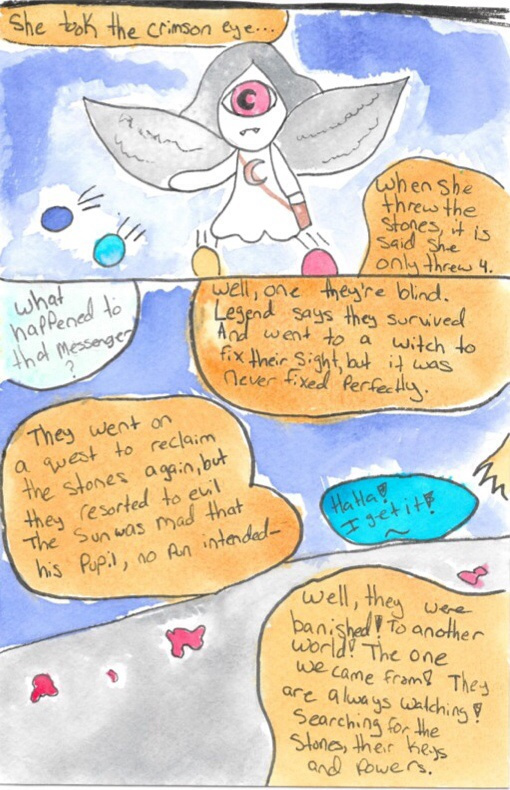 She took the crimson eye...
when she
threw the
Stones, it is
said she
only threw 4.
what
happened to
that Messenger
?
Well, one they're blind.
Legend says they survived
And went to a witch to
fix their Sight, but it was
never fixed Perfectly.
They went on
a quest to reclaim
the stones again, but
they resorted to evil
The Sun was mad that
his Pupil, no Pun intended-
HaHa!
I get it!
~
Well, they were
banished! To another
world! The one
we came from! They
are always watching!
Searching for the
Stones, their Keys
and Powers.